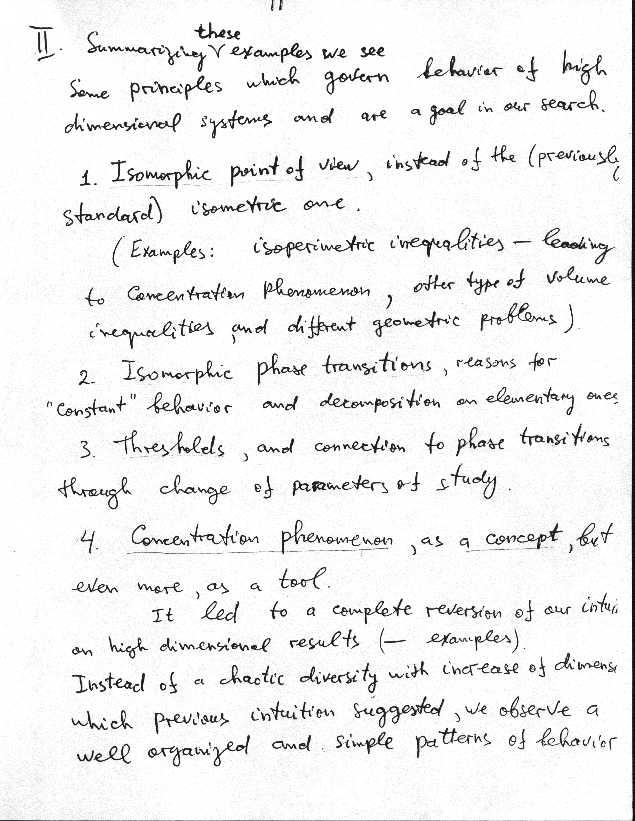 11
II. Summarizing these examples we see
some principles which govern behavior of high
dimensional systems and are a goal in our search.
1. Isomorphic point of view, instead of the (previously
standard) isometric one.
(Examples: isoperimetric inequalities – leading
to Concentration Phenomenon, other type of volume
inequalities and different geometric problems)
2. Isomorphic phase transitions, reasons for
"constant" behavior and decomposition on elementary ones
3. Thresholds, and connection to phase transitions
through change of parameters of study.
4. Concentration phenomenon, as a concept, but
even more, as a tool.
It led to a complete reversion of our intui
on high dimensional results (– examples)
Instead of a chaotic diversity with increase of dimens
which previous intuition suggested, we observe a
well organized and simple patterns of behavior